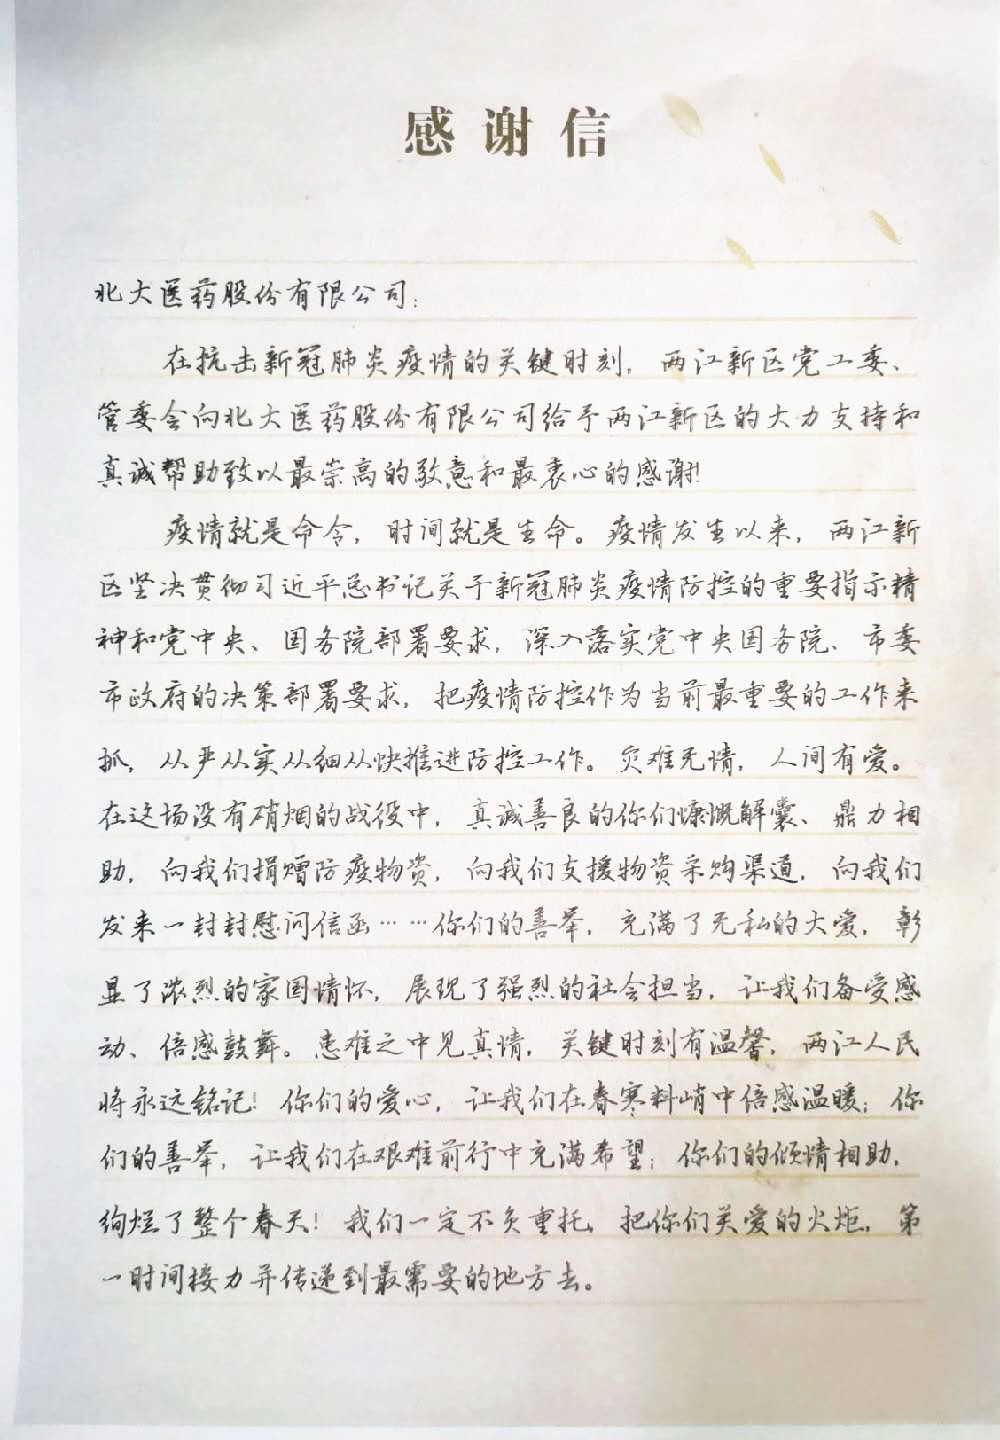 感谢信
北大医药股份有限公司：
在抗击新冠肺炎疫情的关键时刻，两江新区党工委、
管委会向北大医药股份有限公司给予两江新区的大力支持和
真诚帮助致以最崇高的敬意和最衷心的感谢！
疫情就是命令，时间就是生命。疫情发生以来，两江新
区坚决贯彻习近平总书记关于新冠肺炎疫情防控的重要指示精
神和党中央、国务院部署要求，深入落实党中央国务院、市委
市政府的决策部署要求，把疫情防控作为当前最重要的工作来
抓，从严从实从细从快推进防控工作。灾难无情，人间有爱。
在这场没有硝烟的战役中，真诚善良的你们慷慨解囊、鼎力相
助，向我们捐赠防疫物资，向我们支援物资采购渠道，向我们
发来一封封慰问信函……你们的善举，充满了无私的大爱，彰
显了浓烈的家国情怀，展现了强烈的社会担当，让我们备受感
动、倍感鼓舞。患难之中见真情，关键时刻有温馨，两江人民
将永远铭记！你们的爱心，让我们在春寒料峭中倍感温暖；你
们的善举，让我们在艰难前行中充满希望；你们的倾情相助，
绚烂了整个春天！我们一定不负重托，把你们关爱的火炬，第
一时间接力并传递到最需要的地方去。